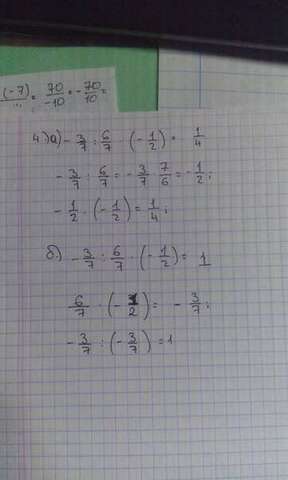 (-7) = 70/-10 = -70/10 =
4.) а) -3/7 : 6/7 · (-1/2) = 1/4
-3/7 : 6/7 = -3/7 · 7/6 = -1/2;
-1/2 · (-1/2) = 1/4;
б) -3/7 : 6/7 · (-1/2) = 1
6/7 · (-1/2) = -3/7;
-3/7 : (-3/7) = 1